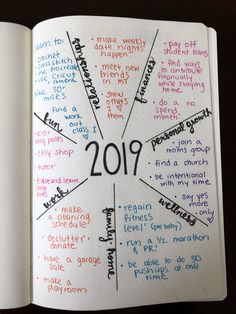 learn to:
crochet
crossstitch
macrame
cricut
like 30
miles
find a
work
out
class !
fun
relationships
• make weekly
date nights
happen!
• meet new
friends in
MS
• show
others
I
love
them
finances
• pay off
student loans
• find ways
to contribute
financially
while staying
home
• do a no
spend
month!
personal growth
• join a
moms group
• find a church
• be intentional
with my time
• say yes
more
often
2019
wellness
• regain
fitness
level! (pre baby)
• run a 1/2 marathon
& PR!
• be able to do 30
pushups at one
time
family/home
• make a
cleaning
schedule
• declutter &
donate
• have a garage
sale
• make a
playroom
work
100+
blog posts
• etsy shop
• tutor